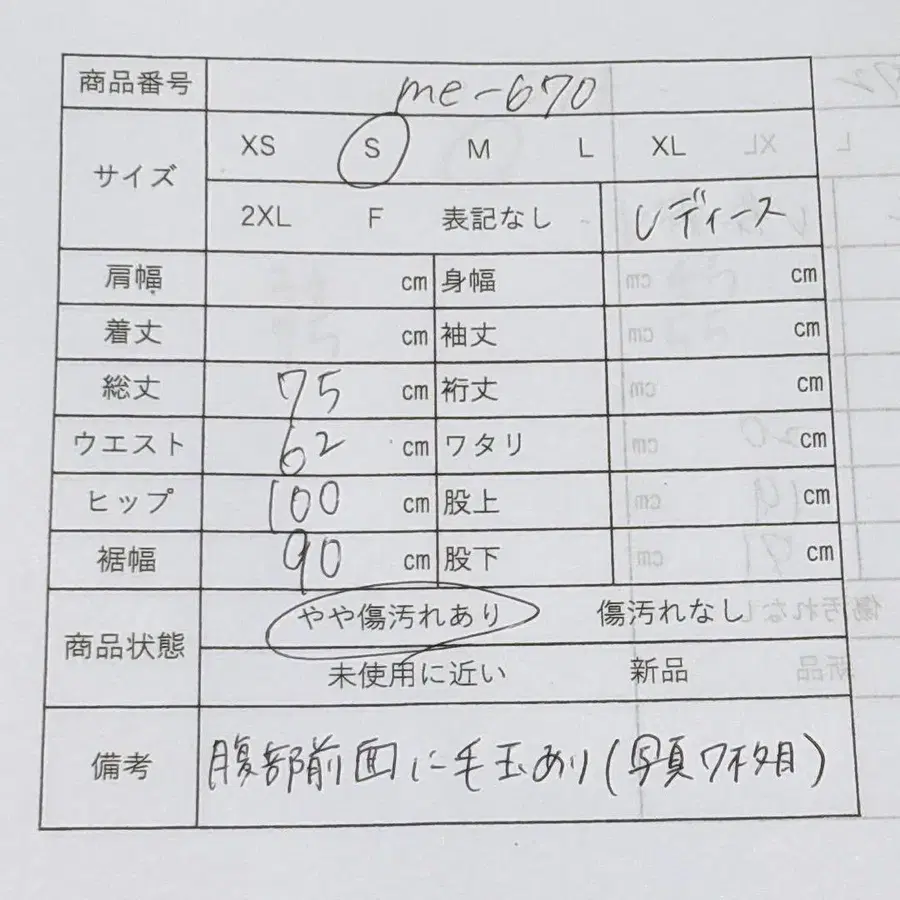 商品番号 me-670
サイズ XS S M L XL
2XL F 表記なし レディース
肩幅 cm 身幅 cm
着丈 cm 袖丈 cm
総丈 75 cm 裄丈 cm
ウエスト 62 cm ワタリ cm
ヒップ 100 cm 股上 cm
裾幅 90 cm 股下 cm
商品状態 やや傷汚れあり 傷汚れなし
未使用に近い 新品
備考 腹部前面に毛玉あり(写真7枚目)